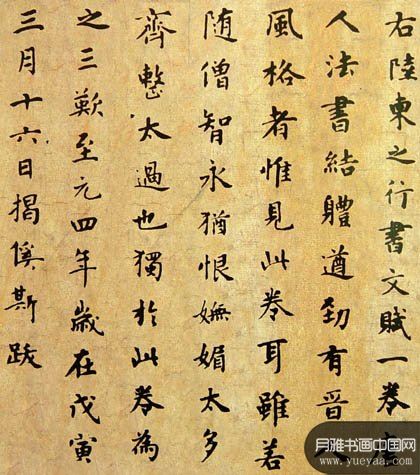 右陸柬之行書文賦一卷唐
人法書結體遒勁有晉人
風格者惟見此卷耳雖若
随僧智永猶恨嫵媚太多
齊整太過也獨於此卷為
之三歎至元四年歲在戊寅
三月十六日揭傒斯跋
月雅书画中国网
www.yueyaa.com